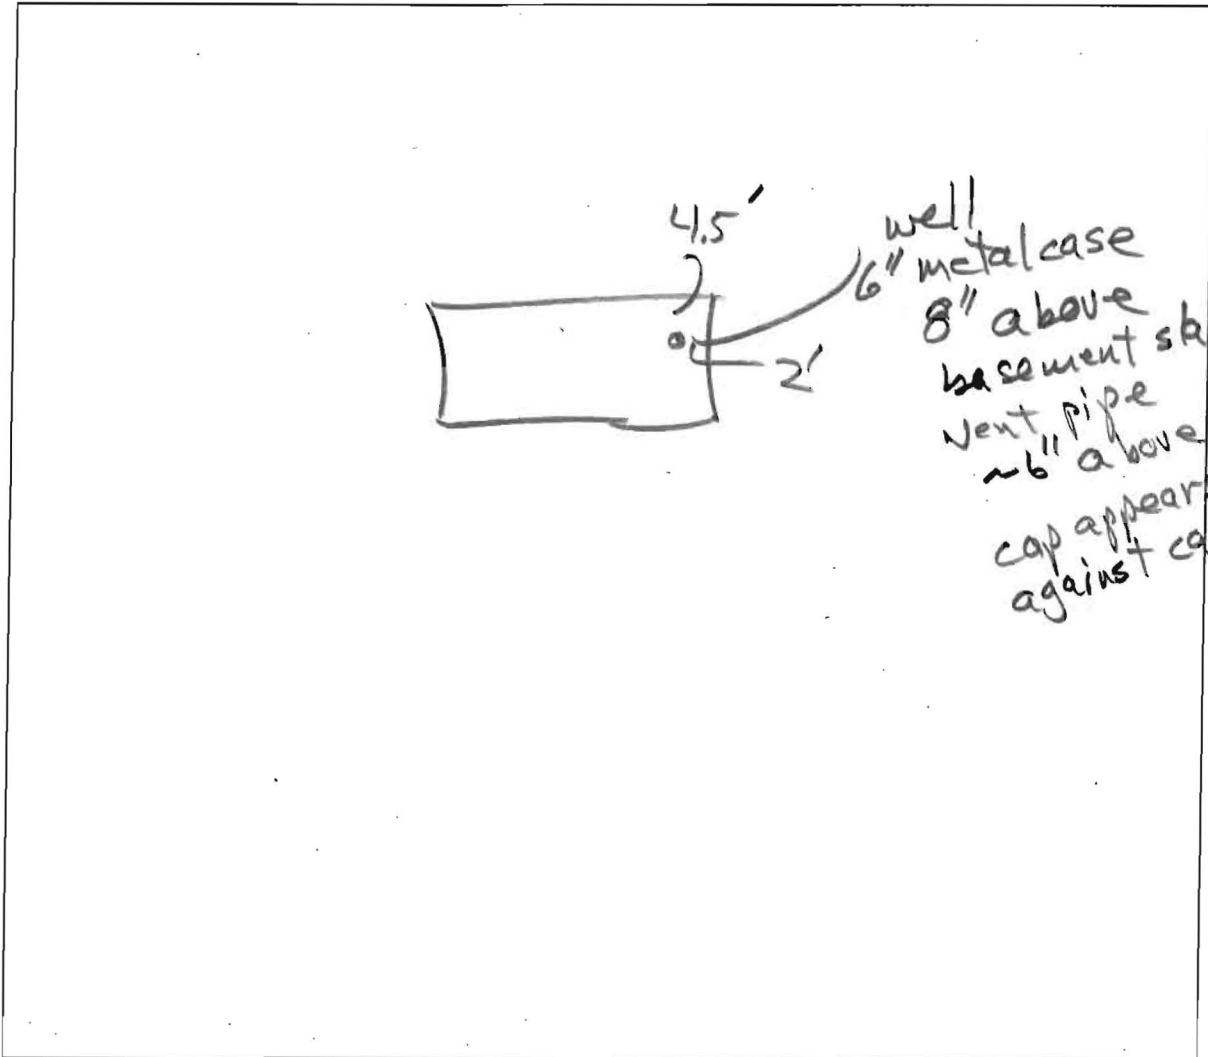 4.5'
well
6" metal case
8" above
basement sla
vent pipe
~6" above
cap appear
against ca
2'